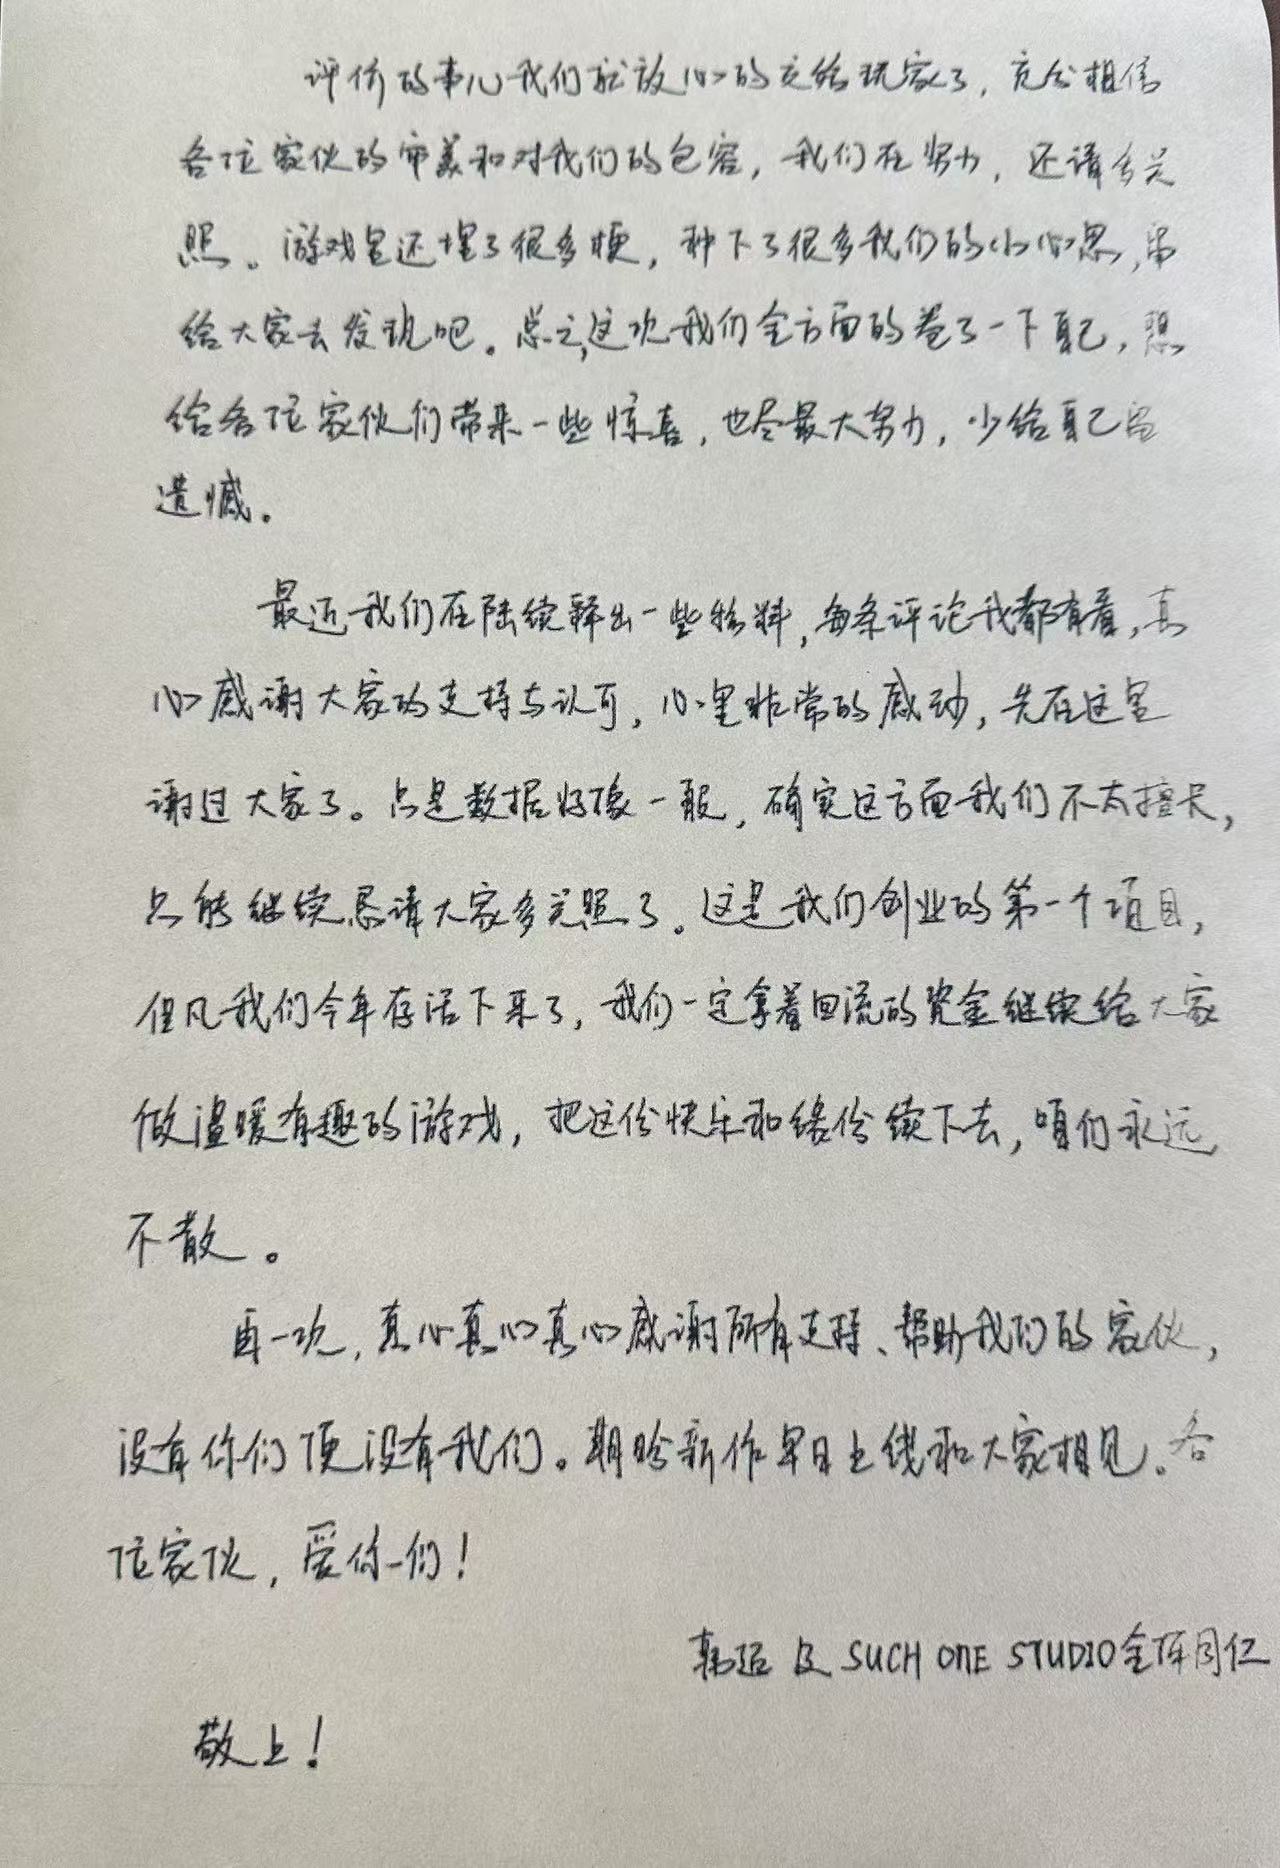 评价的事儿我们就放心的交给玩家了，充分相信
各位家伙的审美和对我们的包容，我们在努力，还请多关
照。游戏里还埋了很多梗，种下了很多我们的小心思，留
给大家去发现吧。总之，这次我们全方面的卷了一下自己，想
给各位家伙们带来一些惊喜，也尽最大努力，少给自己留
遗憾。
最近我们在陆续释出一些物料，每条评论我都有看，真
心感谢大家的支持与认可，心里非常的感动，先在这里
谢过大家了。只是数据好像一般，确实这方面我们不太擅长，
只能继续恳请大家多关照了。这是我们创业的第一个项目，
但凡我们今年存活下来了，我们一定拿着回流的资金继续给大家
做温暖有趣的游戏，把这份快乐和缘份续下去，咱们永远
不散。
再一次，真心真心真心感谢所有支持、帮助我们的家伙，
没有你们便没有我们。期盼新作早日上线和大家相见。各
位家伙，爱你一们！
韩 及 SUCH ONE STUDIO全体同仁
敬上！